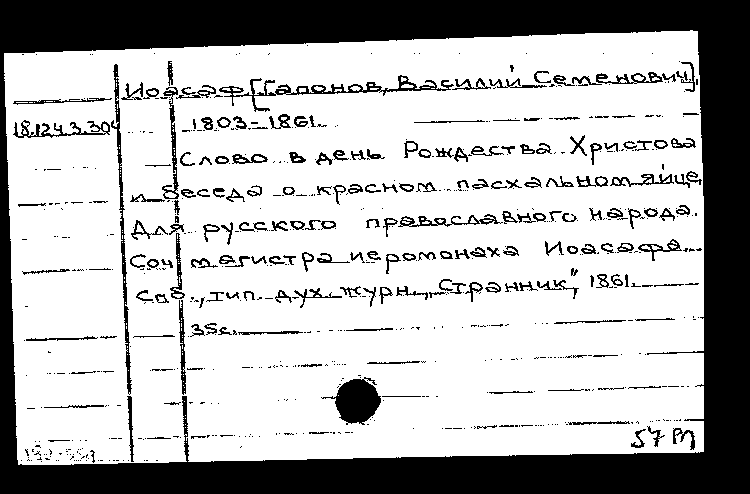 Иоасаф [Гапонов, Василий Семенович],
18.124.3.304 1803-1861.
Слово в день Рождества Христова
и беседа о красном пасхальном яйце.
Для русского православного народа.
Соч. магистра иеромонаха Иоасафа.
Спб., тип. дух. журн. „Странник“, 1861.
35с.
57 м